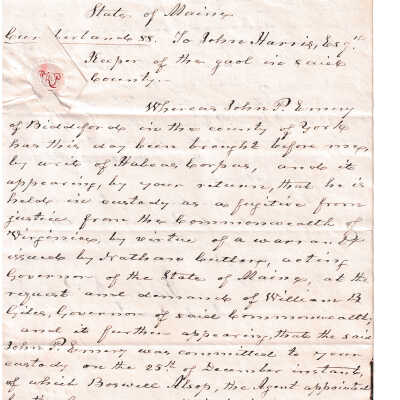 State of Maine
Cumberland SS. To John Harris, Esqr.
Keeper of the gaol in said
County.—
Whereas John P. Emery
of Biddeford in the county of York
has this day been brought before me
by writ of Habeas Corpus, and it
appearing, by your return, that he is
held in custody as a fugitive from
justice from the Commonwealth of
Virginia, by virtue of a warrant
issued by Nathan Cutler, acting
Governor of the State of Maine, at the
request and demand of William B
Giles, Governor of said Commonwealth,
and it further appearing, that the said
John P. Emery was committed to your
custody on the 25th of December instant,
of which Boswell Alsop, the Agent appointed